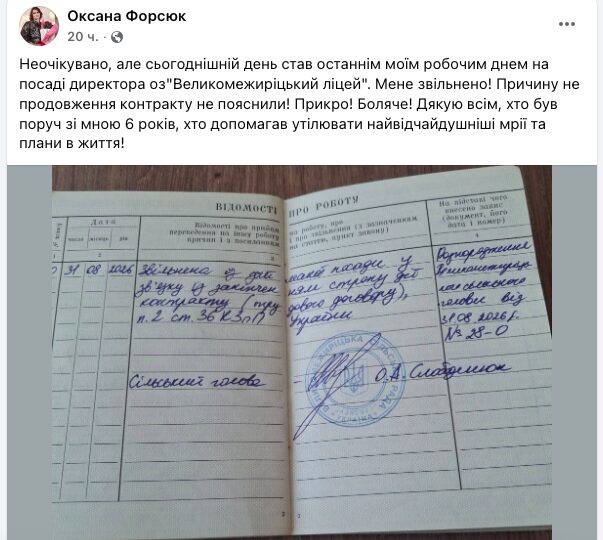 Оксана Форсюк
20 ч. ·
Неочікувано, але сьогоднішній день став останнім моїм робочим днем на
посаді директора оз"Великомежиріцький ліцей". Мене звільнено! Причину не
продовження контракту не пояснили! Прикро! Боляче! Дякую всім, хто був
поруч зі мною 6 років, хто допомагав утілювати найвідчайдушніші мрії та
плани в життя!
ВІДОМОСТІ ПРО РОБОТУ
Дата
число місяць рік
Відомості про прийом
переведення на іншу роботу
причин і з посиланням
на роботу, про
і про звільнення (з зазначенням
на статтю, пункт закону)
На підставі чого
внесено запис
(документ, його
дата і номер)
2
4
31 08 2026 Звільнена із займаної посади у
зв'язку із закінченням строку дії
контракту (трудового договору),
п.2 ст.36 КЗпП України
Розпорядження
Великомежиріцького
сільського
голови від
31.08.2026 р.
№ 28-О
Сільський голова О.А. Слободенюк
УКРАЇНА